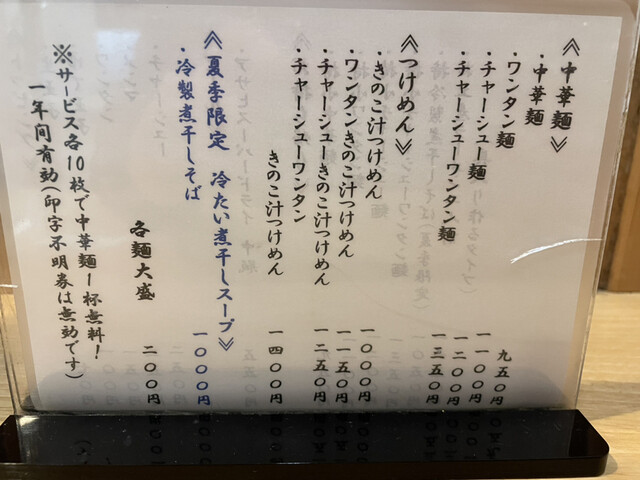 ≪中華麺≫
・中華麺 九五〇円
・ワンタン麺 一一〇〇円
・チャーシュー麺 一二〇〇円
・チャーシューワンタン麺 一三五〇円
≪つけめん≫
・きのこ汁つけめん 一〇〇〇円
・ワンタンきのこ汁つけめん 一一五〇円
・チャーシューきのこ汁つけめん 一二五〇円
・チャーシューワンタン
きのこ汁つけめん 一四〇〇円
≪夏季限定 冷たい煮干しスープ≫
・冷製煮干しそば 一〇〇〇円
各麺大盛 二〇〇円
※サービス各10枚で中華麺1杯無料!
一年間有効(印字不明券は無効です)